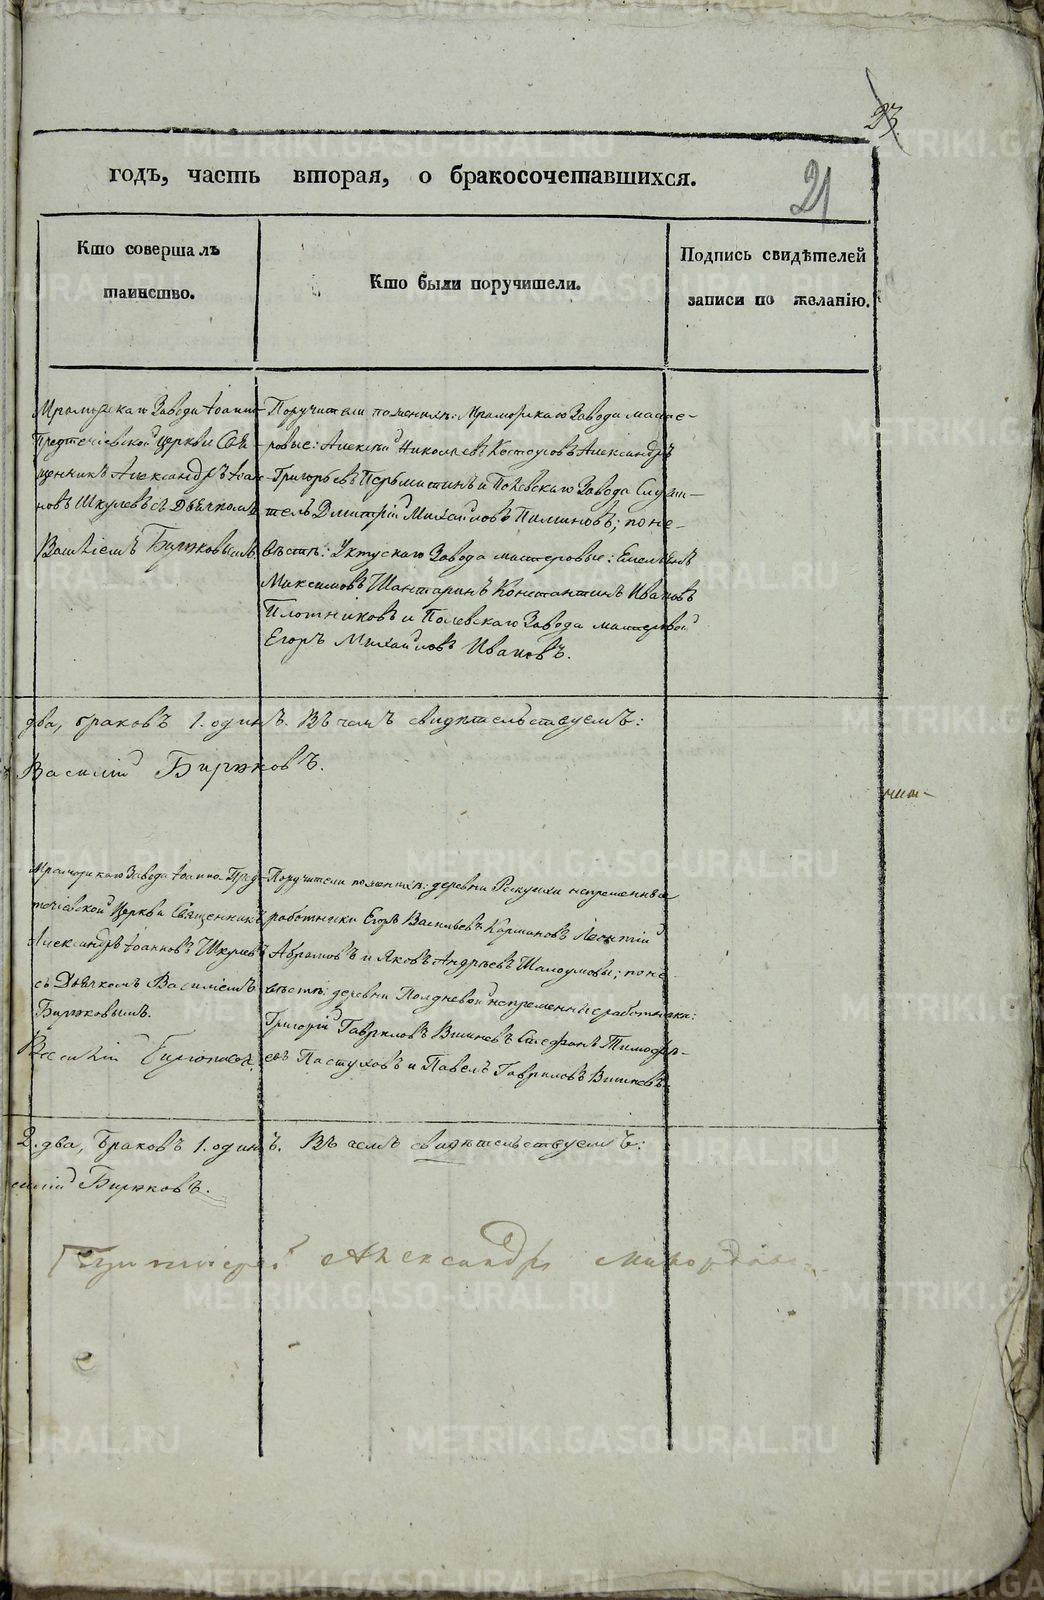 23
годъ, часть вторая, о бракосочетавшихся.
21
Кто совершалъ
таинство.
Кто были поручители.
Подпись свидѣтелей
записи по желанію.
Мраморскаго Завода Іоанно-
Предтечіевской Церкви Свя-
щенникъ Александръ Іоан-
новъ Шкулевъ съ Дьячкомъ
Василіемъ Бирюковымъ.
Поручители по женихѣ: Мраморскаго Завода масте-
ровые: Алексѣй Николаевъ Костоусовъ Александръ
Григорьевъ и Полевскаго Завода Служи-
тель Дмитрій Михайловъ Пиминовъ; по не-
вѣстѣ: Уктускаго Завода мастеровые: Емельянъ
Максимовъ Шантаринъ Константинъ Ивановъ
Плотниковъ и Полевскаго Завода мастеровой
Егоръ Михайловъ Ивановъ.
два, браковъ 1. одинъ. Въ чемъ свидѣтельствуемъ:
Василій Бирюковъ.
Мраморскаго Завода Іоанно-Пред-
течіевской Церкви Священникъ
Александръ Іоанновъ Шкулевъ
съ Дьячкомъ Василіемъ
Бирюковымъ.
Василій
Поручители по женихѣ: деревни непременные
работники Егоръ Васильевъ Кармановъ Леонтій
Абрамовъ и Яковъ Андреевъ Шалоумовы; по не-
вѣстѣ: деревни Полдневой непременные работники:
Григорій Гавриловъ Стефанъ Тимофе-
евъ Пастуховъ и Павелъ Гавриловъ
2. два, браковъ 1. одинъ. Въ чемъ свидѣтельствуемъ:
силій Бирюковъ.
Александръ
METRIKI.GASO-URAL.RU